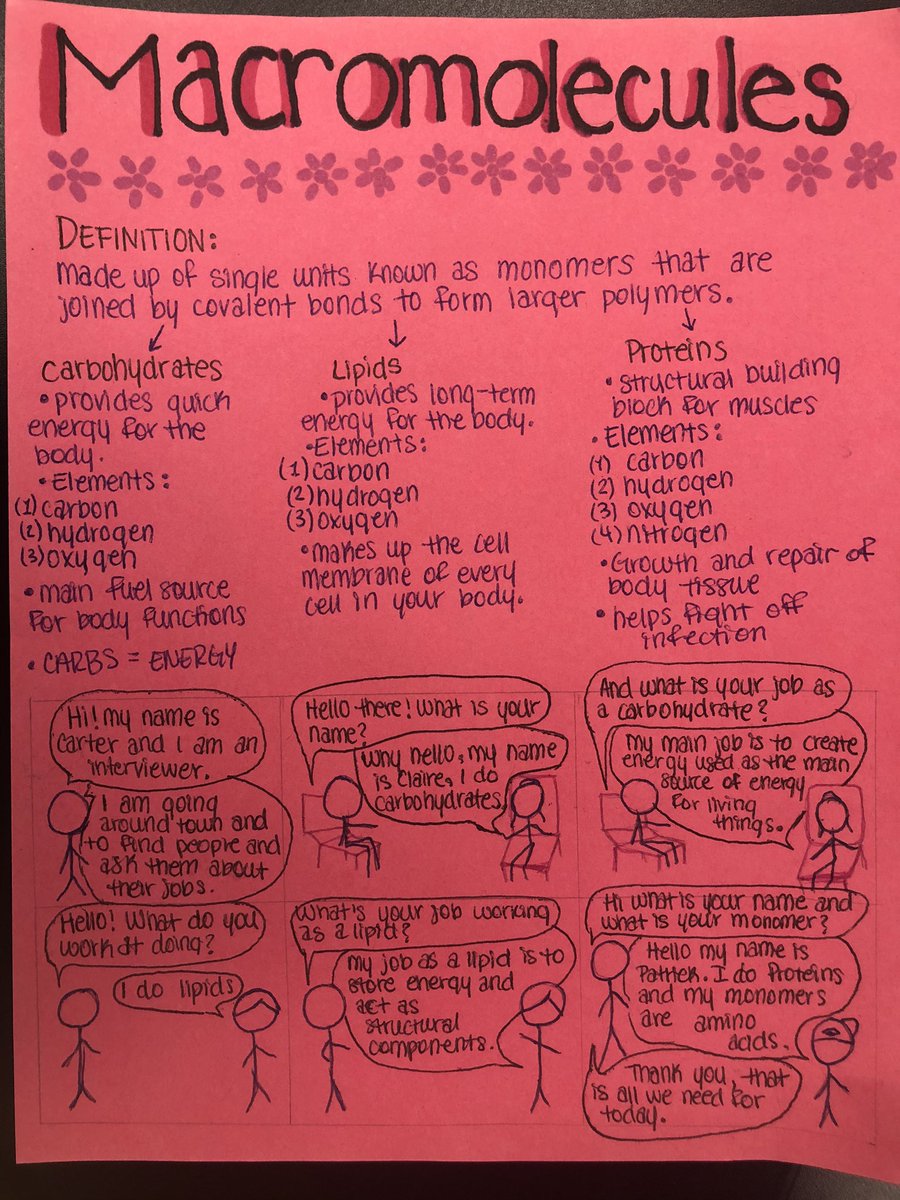 Macromolecules
DEFINITION:
made up of single units known as monomers that are
joined by covalent bonds to form larger polymers.
Carbohydrates
• provides quick
energy for the
body.
• Elements:
(1) carbon
(2) hydrogen
(3) oxygen
• main fuel source
for body functions
• CARBS = ENERGY
Lipids
• provides long-term
energy for the body.
• Elements:
(1) carbon
(2) hydrogen
(3) oxygen
• makes up the cell
membrane of every
cell in your body.
Proteins
• structural building
block for muscles
• Elements:
(1) carbon
(2) hydrogen
(3) oxygen
(4) nitrogen
• Growth and repair of
body tissue
• helps fight off
infection
Hi! my name is
Carter and I am an
interviewer.
I am going
around town and
to find people and
ask them about
their jobs.
Hello there! What is your
name?
Why hello, my name
is Claire, I do
carbohydrates
And what is your job as
a carbohydrate?
My main job is to create
energy used as the main
source of energy
for living
things.
Hello! What do you
work at doing?
I do lipids
What's your job working
as a lipid?
my job as a lipid is to
store energy and
act as
structural
components.
Hi what is your name and
what is your monomer?
Hello my name is
I do Proteins
and my monomers
are amino
acids.
Thank you, that
is all we need for
today.